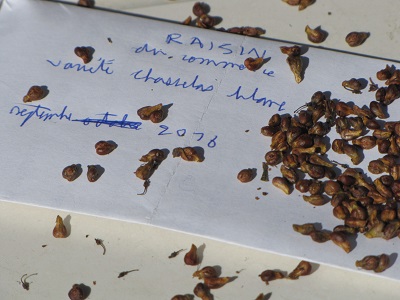 RAISIN
du commerce
variété chasselas blanc
septembre octobre 2016